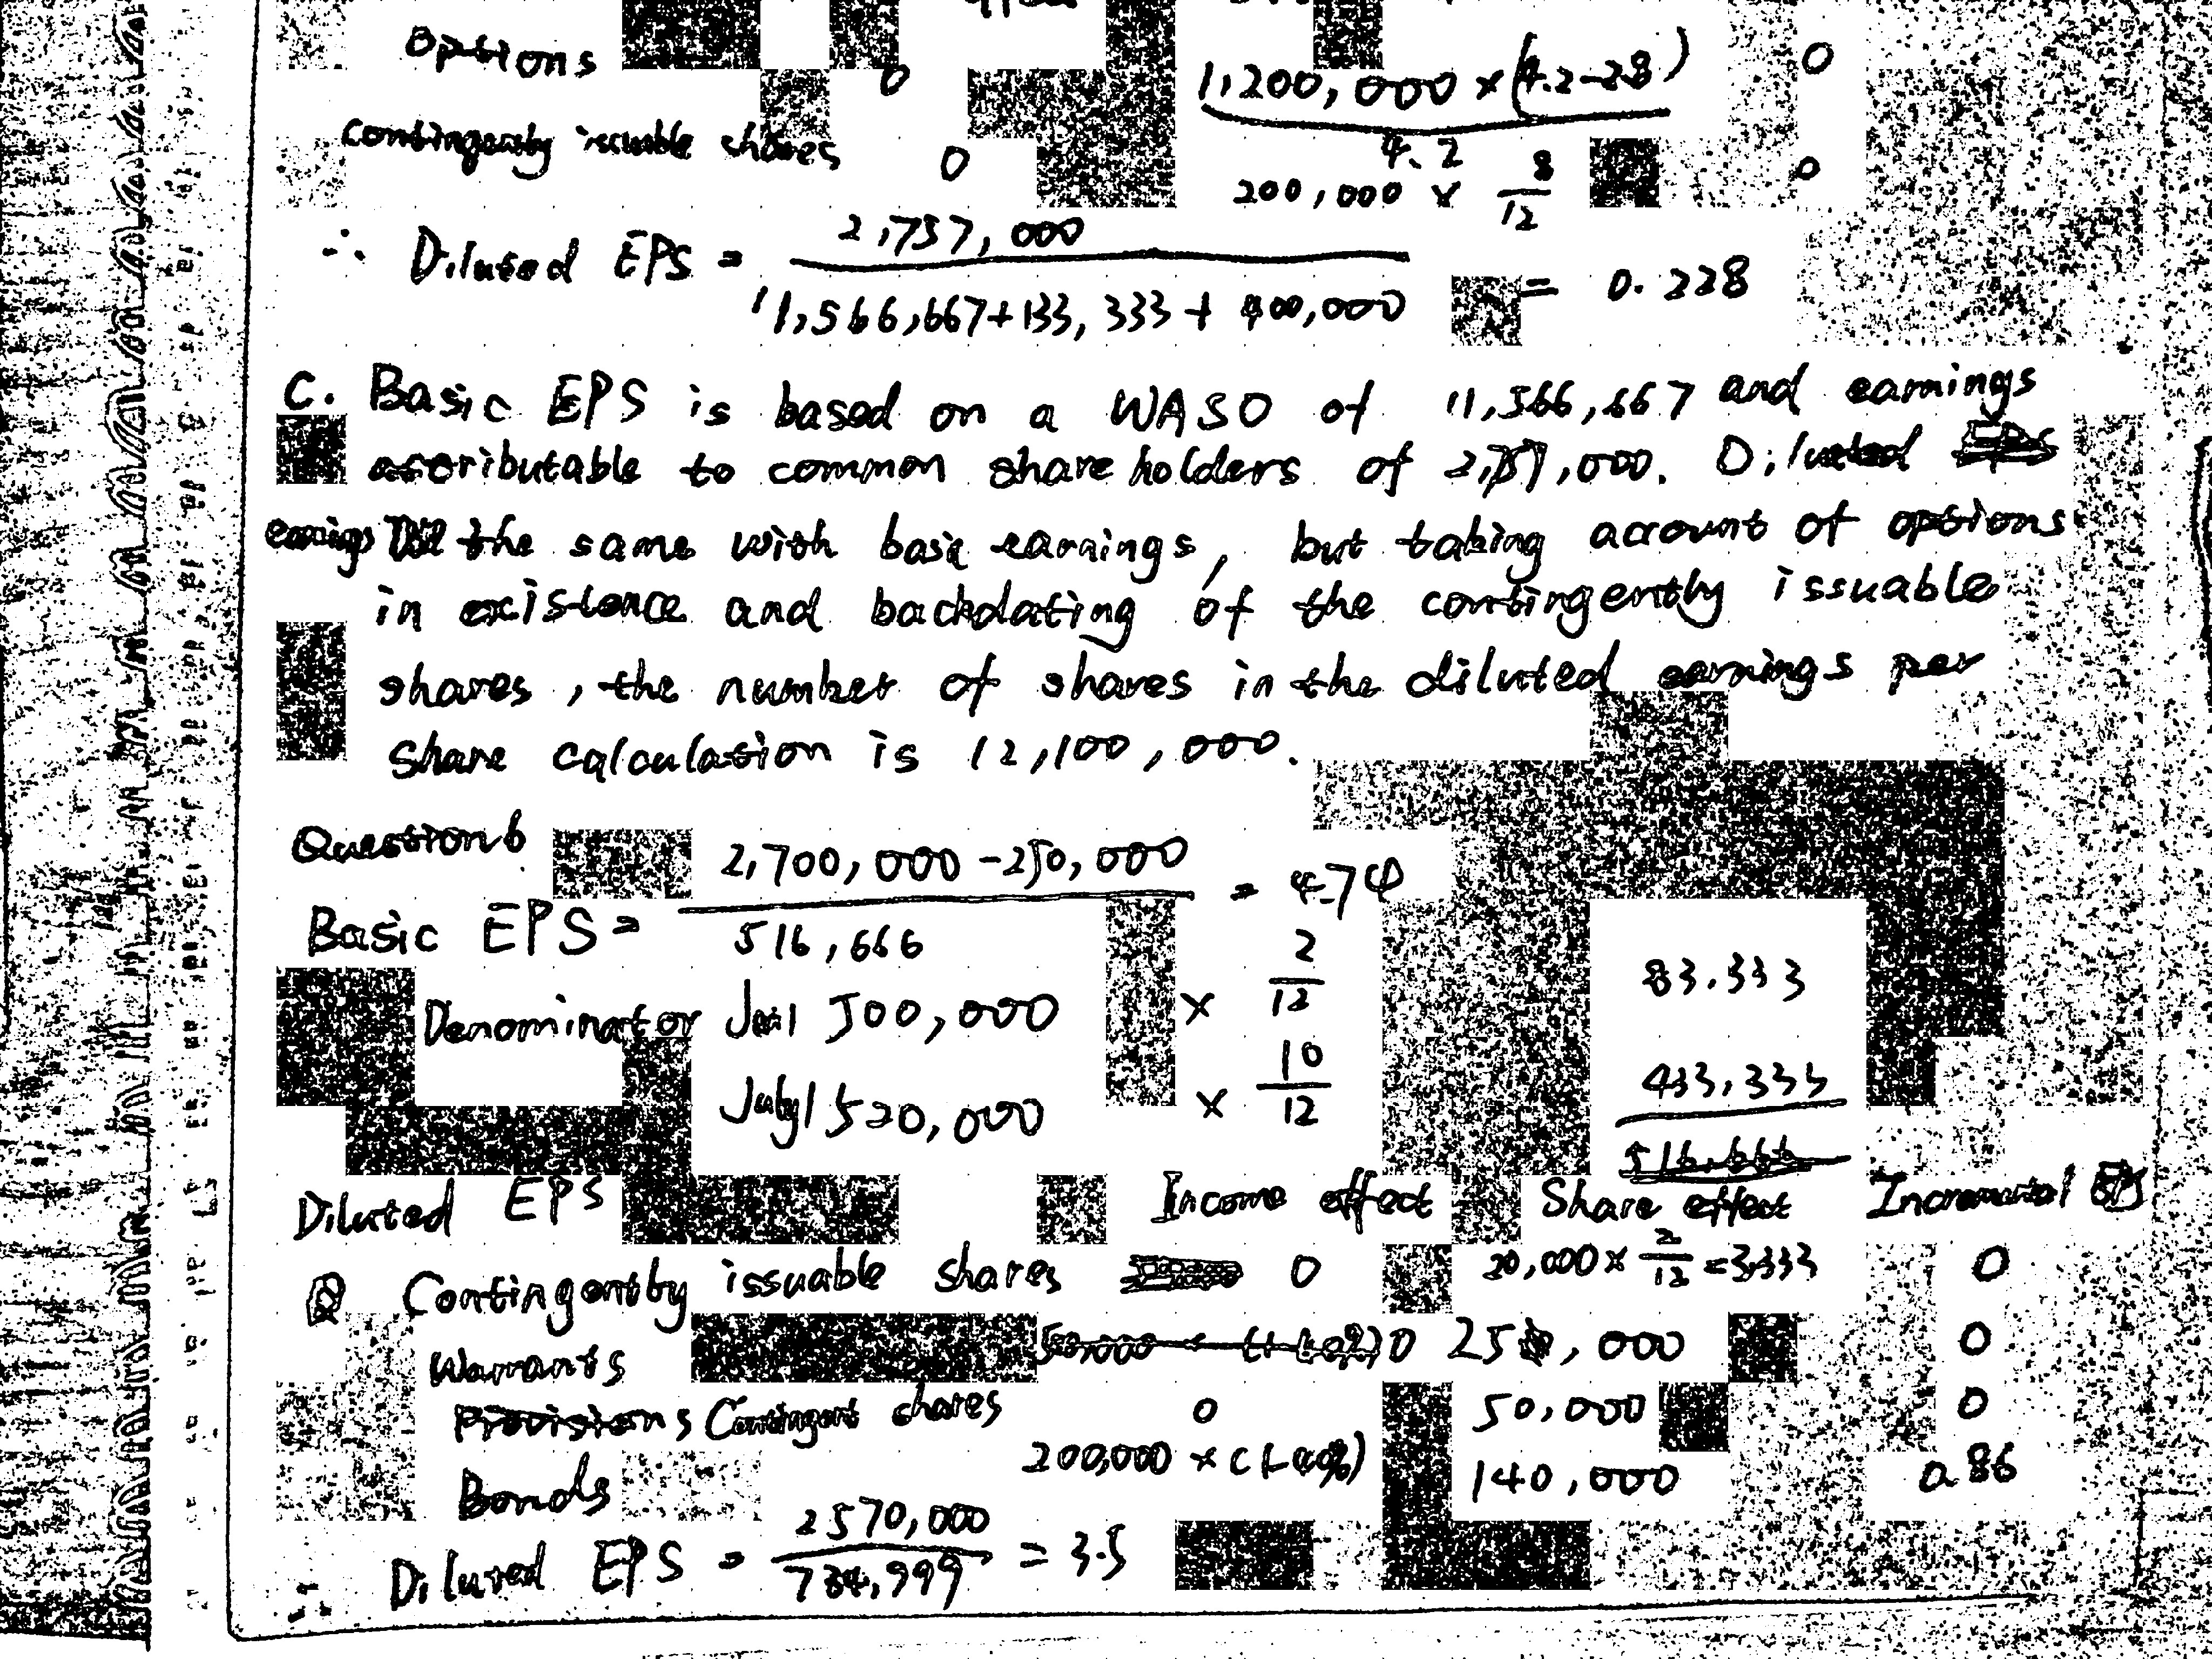 Options 0 1,200,000 × (4.2-2.8) 0
4.2
contingently issuable shares 0 200,000 × 8/12 0
∴ Diluted EPS = 2,757,000 / 11,566,667+133,333+400,000 = 0.228
C. Basic EPS is based on a WASO of 11,566,667 and earnings
attributable to common shareholders of 2,757,000. Diluted
earnings the same with basic earnings, but taking account of options
in existence and backdating of the contingently issuable
shares, the number of shares in the diluted earnings per
share calculation is 12,100,000.
Question 6
Basic EPS = 2,700,000 - 250,000 / 516,666 = 4.74
Denominator Jan 1 500,000 × 2/12 83.333
July 1 520,000 × 10/12 433,333
516,666
Diluted EPS Income effect Share effect Incremental EPS
Contingently issuable shares 0 20,000 × 2/12 = 3,333 0
Warrants 0 25,000 0
Provisions Contingent shares 0 50,000 0
Bonds 200,000 × (1-40%) 140,000 0.86
∴ Diluted EPS = 2570,000 / 734,999 = 3.5